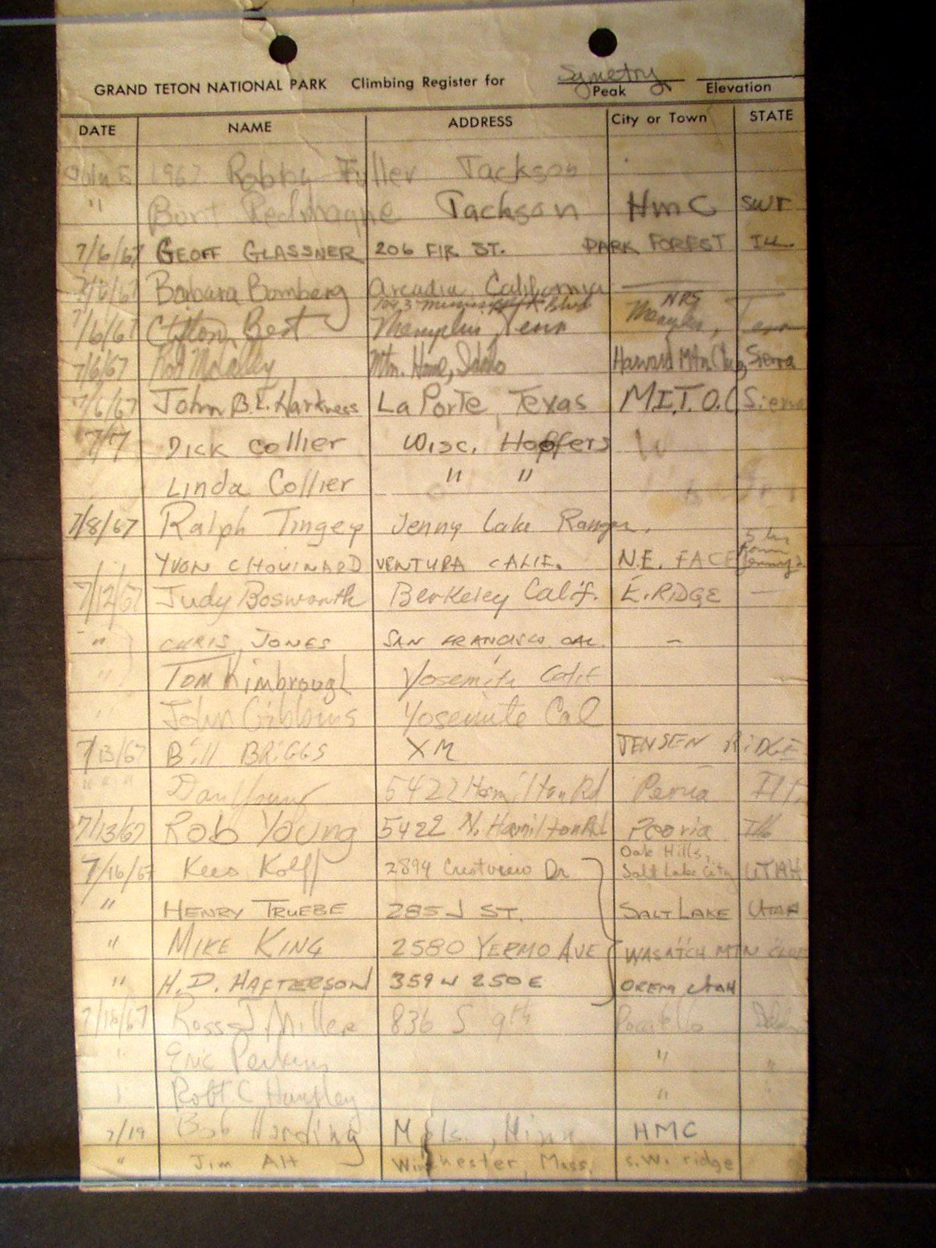 Symetry
GRAND TETON NATIONAL PARK Climbing Register for Peak Elevation
DATE NAME ADDRESS City or Town STATE
1967 Robby Fuller Jackson
" Burt Redmayne Jackson HMC SWR
7/6/67 GEOFF GLASSNER 206 FIR ST. PARK FOREST Ill.
7/6/67 Barbara Bomberg Arcadia, California
NPS
7/6/67 Clifton Best Memphis, Tenn Memphis, Tenn
7/6/67 Rod Mtn. Home, Idaho Harvard Mtn Club, Sierra
7/6/67 John B.L. Harkness La Porte, Texas M.I.T.O.C Sierra
7/7 Dick Collier Wisc. Hoofers
Linda Collier " "
7/8/67 Ralph Tingey Jenny Lake Ranger.
YVON CHOUINARD VENTURA CALIF. N.E. FACE 5 hrs from Jenny L
7/12/67 Judy Bosworth Berkeley Calif. E. RIDGE —
" CHRIS JONES SAN FRANCISCO CAL. –
" Tom Kimbrough Yosemite Calif
" John Gibbins Yosemite Cal
7/13/67 Bill BRIGGS XM JENSEN RIDGE
" " " Dan Young 5422 Hamilton Rd Peoria Ill.
7/13/67 Rob Young 5422 N. Hamilton Rd Peoria Ill
Oak Hills,
7/16/67 Kees Kolff 2894 Crestview Dr. Salt Lake City UTAH
" HENRY TRUEBE 285 J ST. SALT LAKE UTAH
" MIKE KING 2580 YERMO AVE WASATCH MTN CLUB
" H.D. HAFTERSON 359 W 250 E OREM UTAH
7/18/67 Ross J Miller 836 S 9th Pocatello Idaho
" Eric Perkins " "
Robt C Huntley " "
7/19 Bob Harding Mpls., Minn HMC
" Jim Alt Winchester, Mass. S.W. ridge